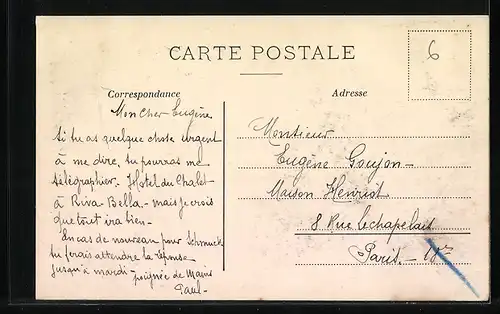 CARTE POSTALE
6
Correspondance
Adresse
Mon Cher Eugène
Si tu as quelque chose urgent
à me dire, tu pourras me
télégraphier. Hotel du Chalet
à Riva Bella - mais je crois
que tout ira bien -
En cas de nouveau pour Schmuck
tu ferais attendre la réponse
jusqu'à mardi - poignée de Mains
Paul -
Monsieur
Eugène Goujon -
Maison Henriot
8 Rue Lechapelais
Paris -